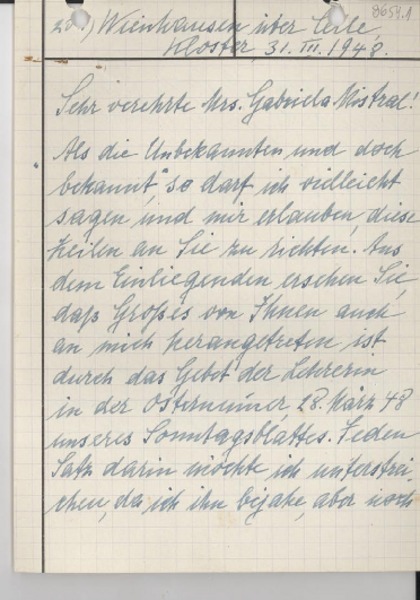 8654.1
20.) Wienhausen über Celle,
Kloster 31. III. 1948.
Sehr verehrte Mrs. Gabriela Mistral!
Als die Unbekannten und doch
bekannt, so darf ich vielleicht
sagen und mir erlauben, diese
Zeilen an Sie zu richten. Aus
dem Einliegenden ersehen Sie,
daß Großes von Ihnen auch
an mich herangetreten ist
durch das Gebet der Lehrerin
in der Osternummer, 28. März 48
unseres Sonntagsblattes. Jeden
Satz darin möchte ich unterstrei-
chen, da ich ihn bejahe, aber noch